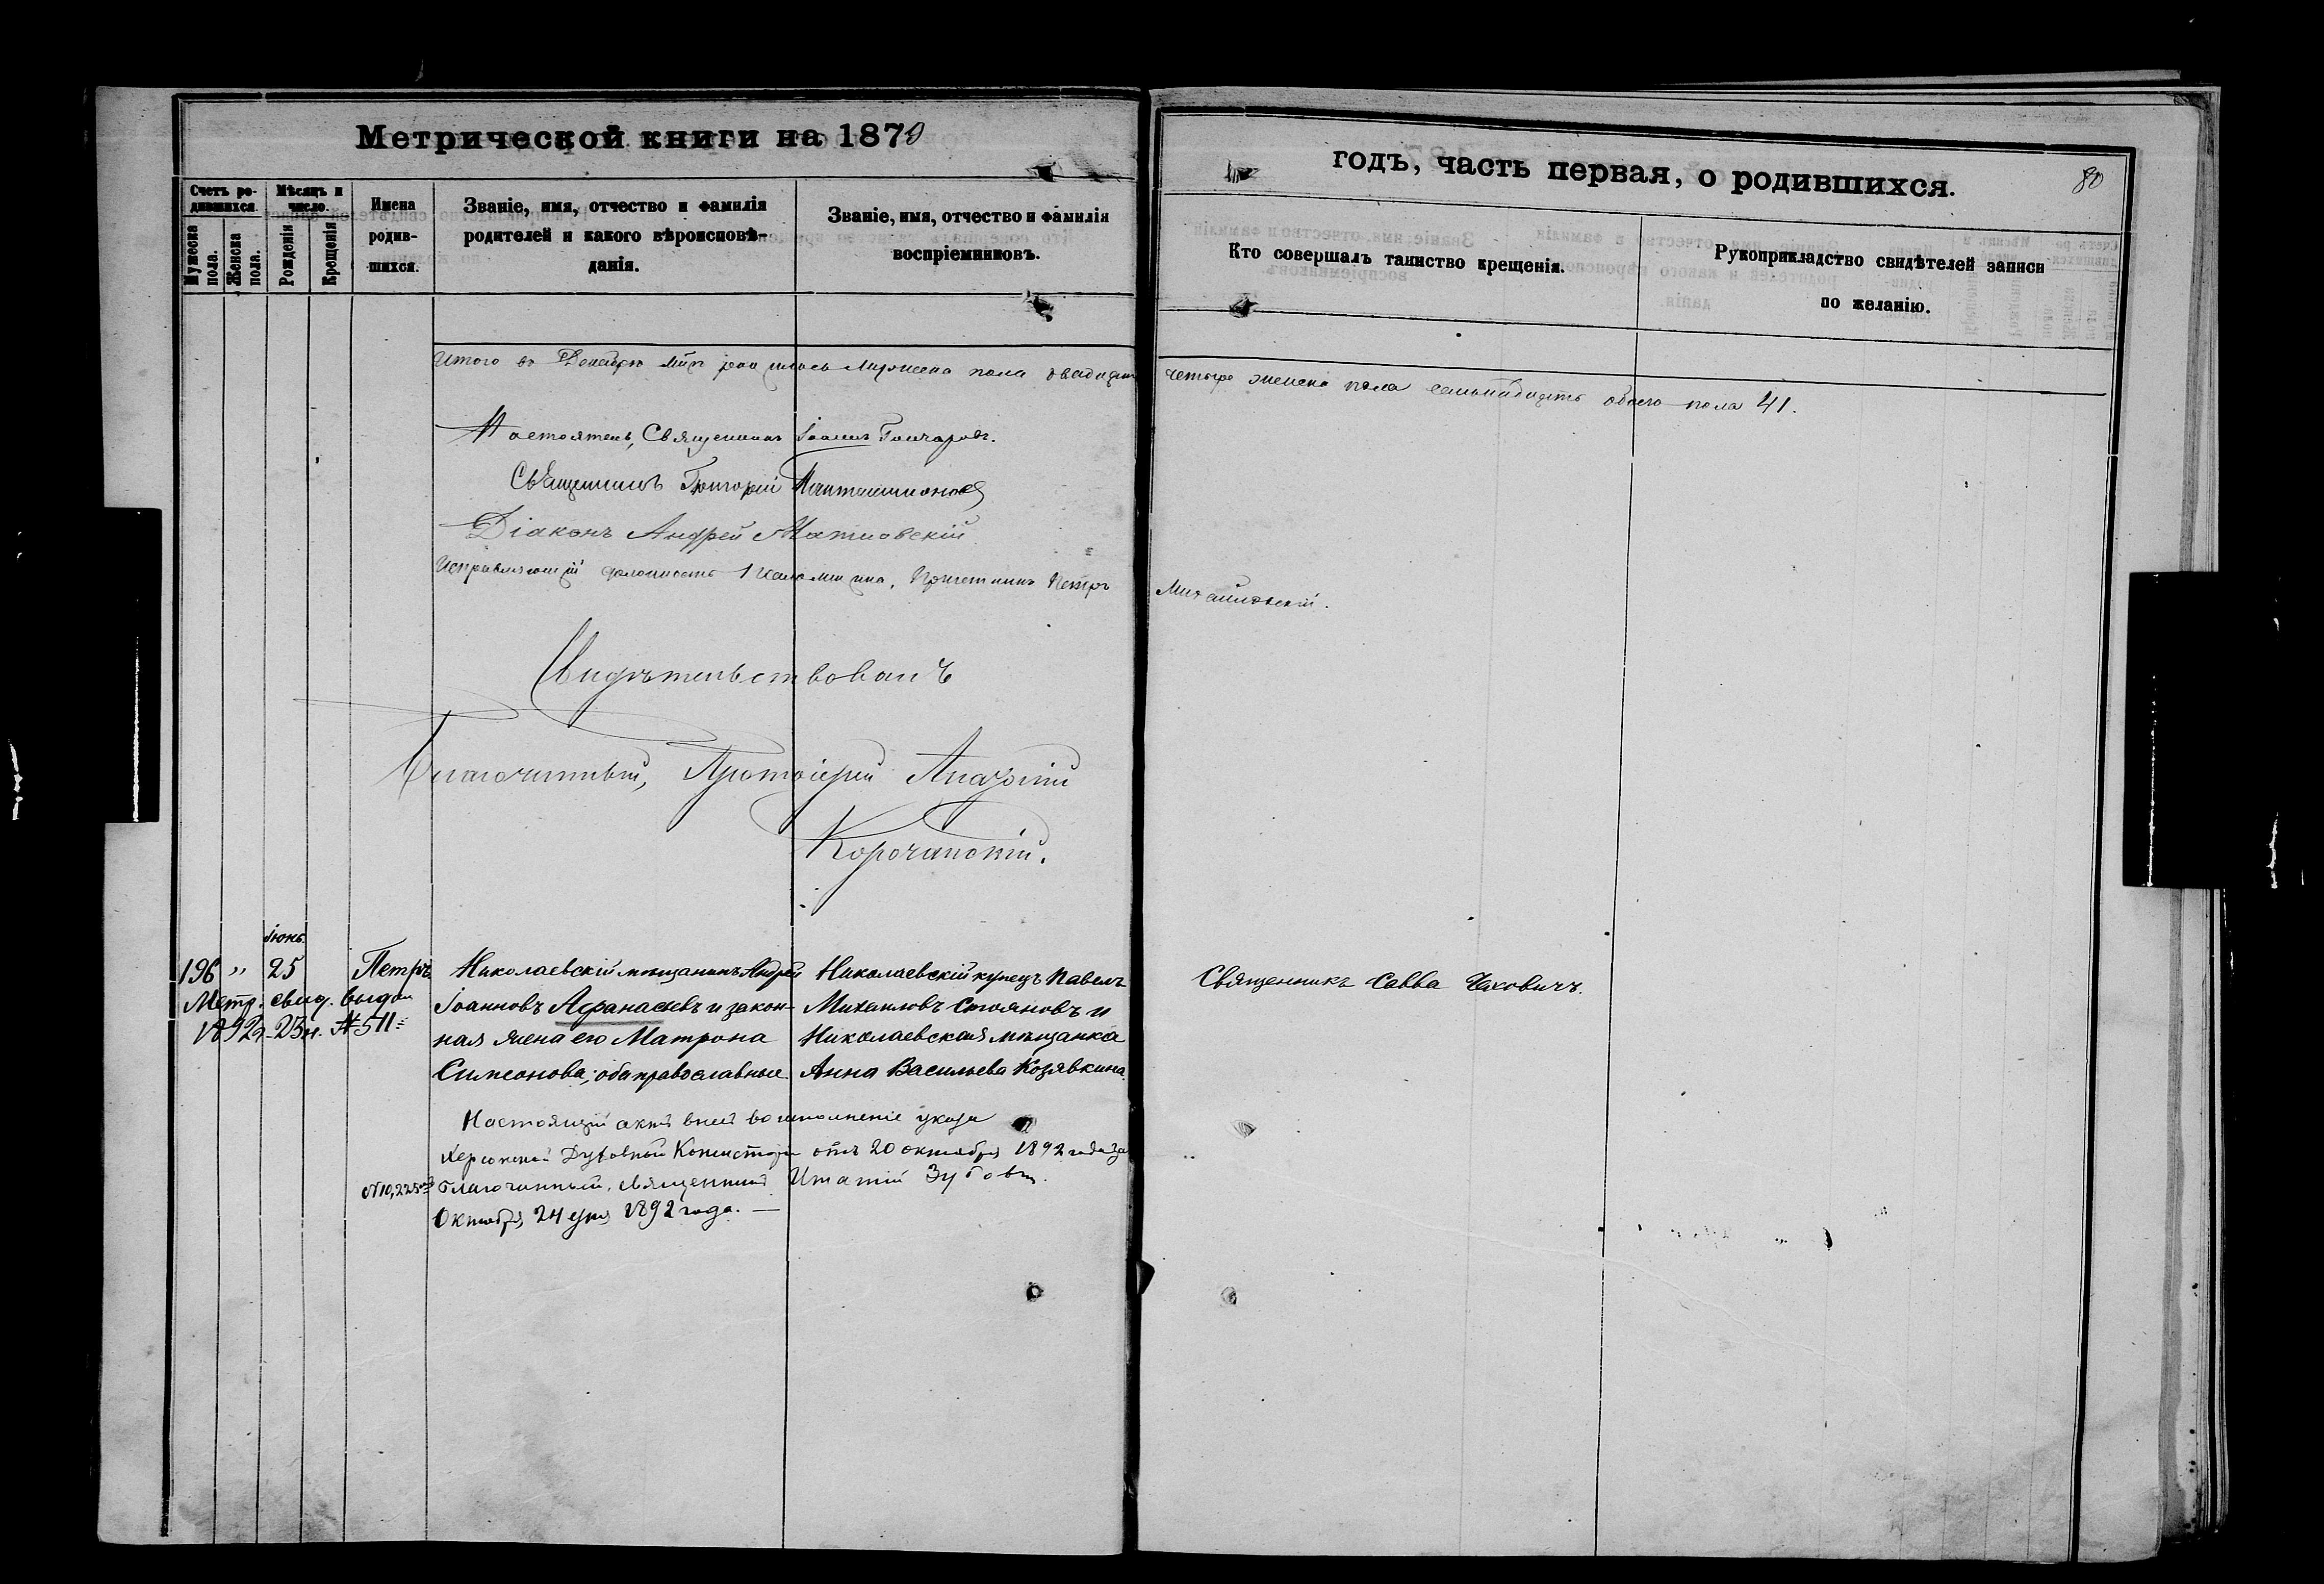 Метрической книги на 1870
годъ, часть первая, о родившихся.
80
Счетъ ро-
дившихся.
Мужеска
пола.
Женска
пола.
Мѣсяцъ и
число.
Рожденія
Крещенія
Имена
родив-
шихся.
Званіе, имя, отчество и фамилія
родителей и какого вѣроисповѣ-
данія.
Званіе, имя, отчество и фамилія
воспріемниковъ.
Кто совершалъ таинство крещенія.
Рукоприкладство свидѣтелей записи
по желанію.
Итого въ Декабрѣ родилось Мужеска пола двадцать четыре женска пола семнадцать обоего пола 41.
Настоятель, Священникъ Іоаннъ Гончаровъ.
Священникъ Григорій
Діаконъ Андрей
Исправляющій должность Псаломщика, Причетникъ Петръ Михайловскій.
Свидѣтельствовалъ
Благочинный, Протоіерей
Корочанскій.
Іюнь
196 " 25 Петръ
Метр. свид. выдан
1892 г. 23 н. № 511
Николаевскій мѣщанинъ Андрей
Іоанновъ Афанасьевъ и закон-
ная жена его Матрона
Симеонова; оба православные.
Николаевскій купецъ Павелъ
Михаиловъ Стояновъ и
Николаевская мѣщанка
Анна Васильева Козявкина.
Священникъ Савва Чаховичъ.
Настоящій актъ во исполненіе указа
Херсонской Духовной Консисторіи отъ 20 октября 1892 года за
№ 10,225 Благочинный, священникъ Игнатій Зубовъ.
Октября 24 дня 1892 года. —